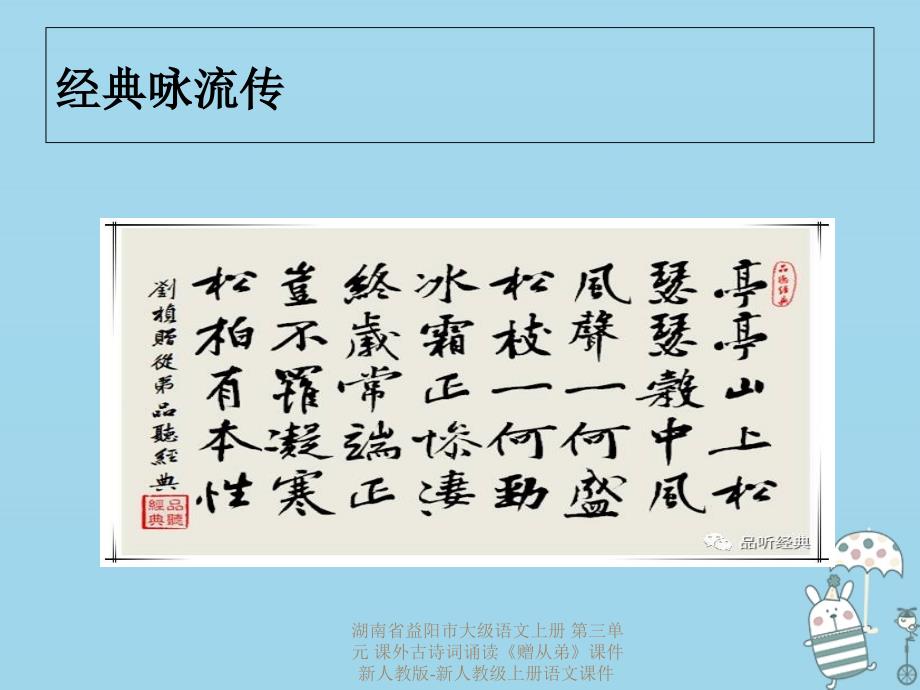 经典咏流传
亭亭山上松
瑟瑟穀中風
風聲一何盛
松枝一何勁
冰霜正惨淒
終歲常端正
豈不罹凝寒
松柏有本性
劉楨贈從弟品聽經典
品聽
經典
品听经典
湖南省益阳市大级语文上册 第三单
元 课外古诗词诵读《赠从弟》课件
新人教版-新人教级上册语文课件